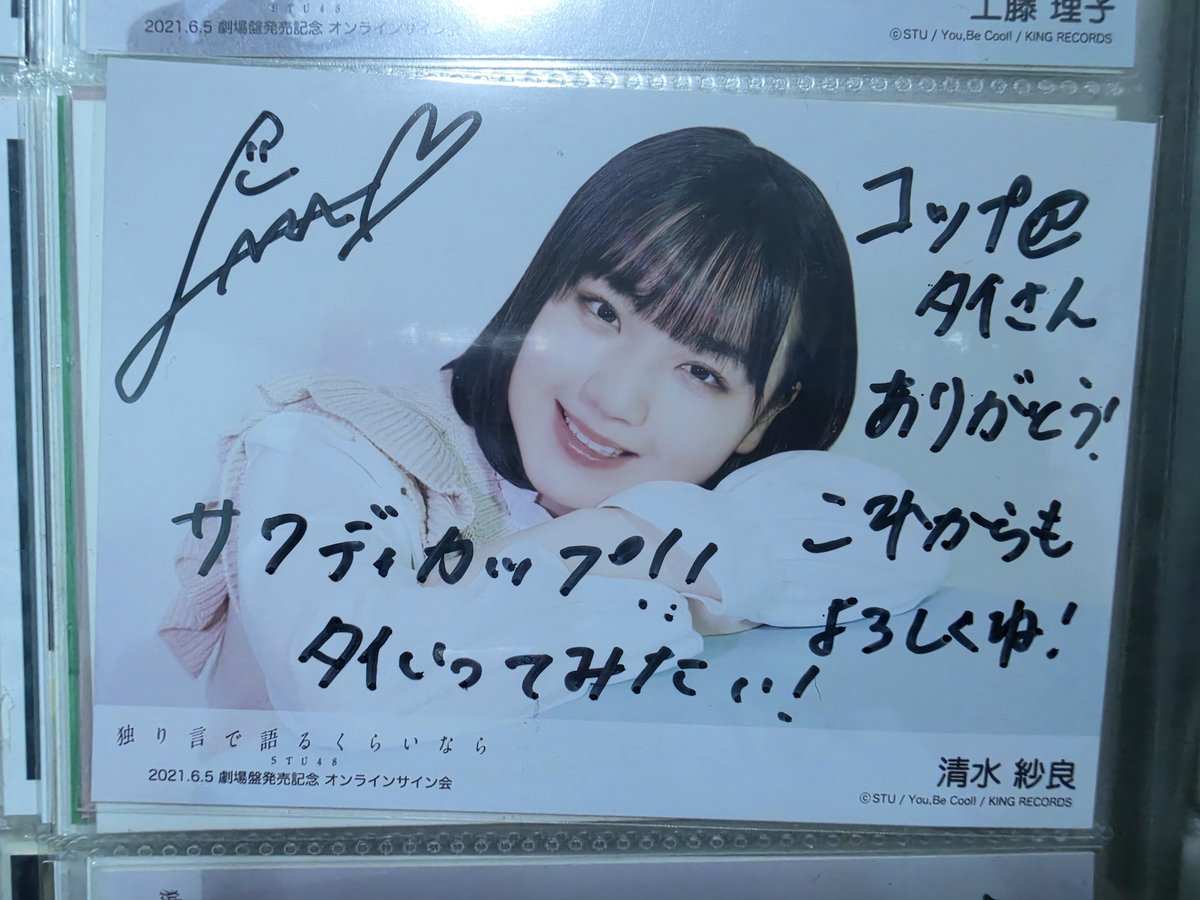 STU48
2021.6.5 劇場盤発売記念 オンラインサイン会
工藤 理子
©STU / You,Be Cool! / KING RECORDS
コップ@
タイさん
ありがとう!
これからも
よろしくね!
サワディカップ!!
タイいってみたい!
独り言で語るくらいなら
STU48
2021.6.5 劇場盤発売記念 オンラインサイン会
清水 紗良
©STU / You,Be Cool! / KING RECORDS